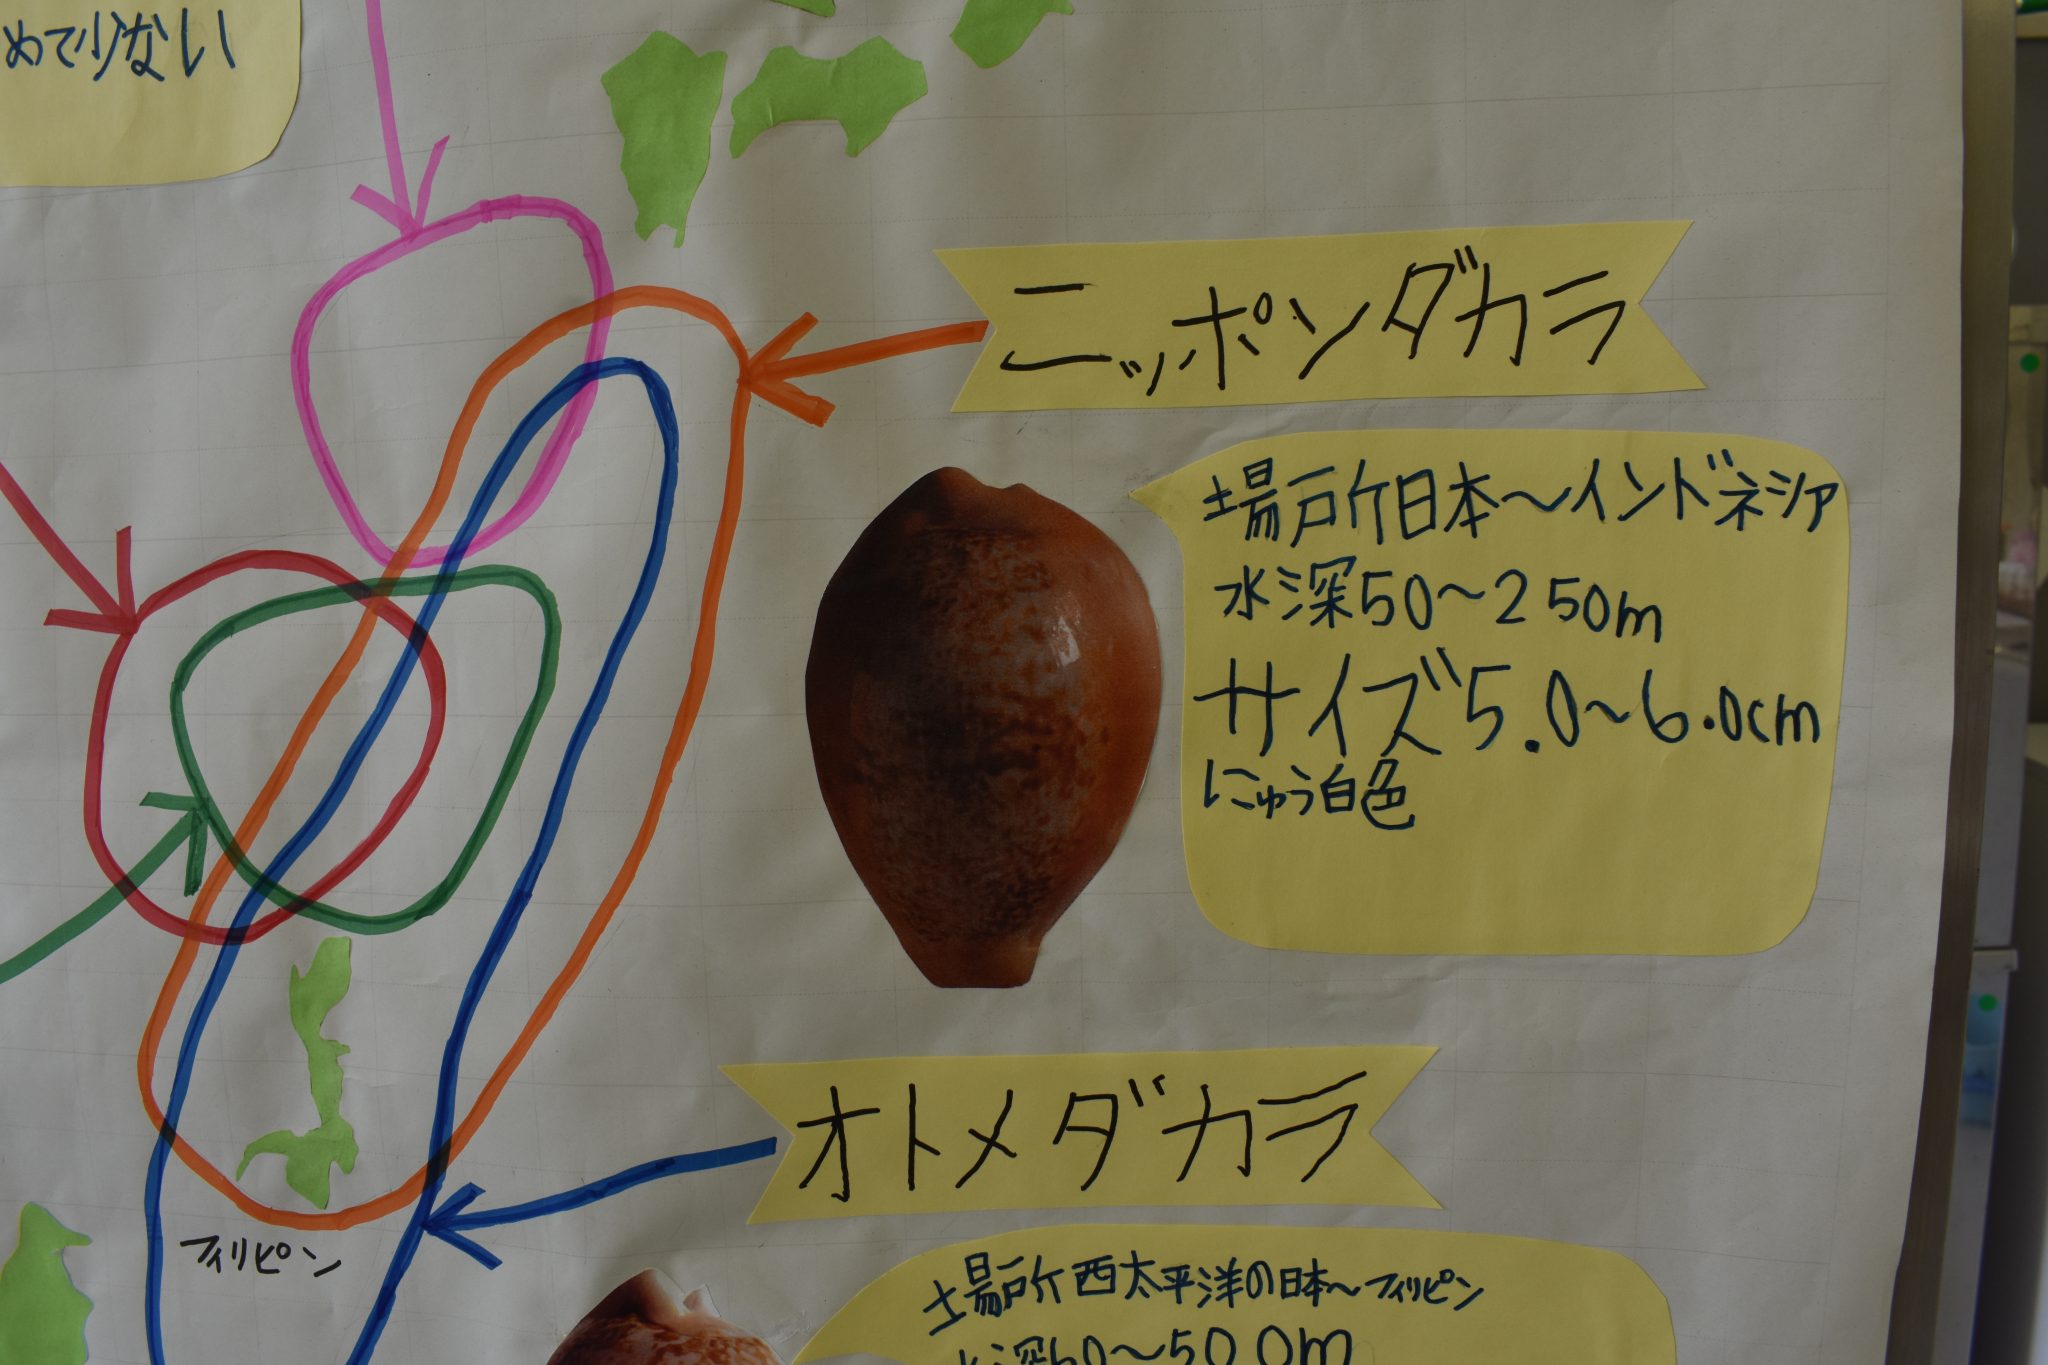 めて少ない
ニッポンダカラ
場所日本〜インドネシア
水深50〜250m
サイズ5.0〜6.0cm
にゅう白色
オトメダカラ
フィリピン
場所西太平洋の日本〜フィリピン
水深60〜500m